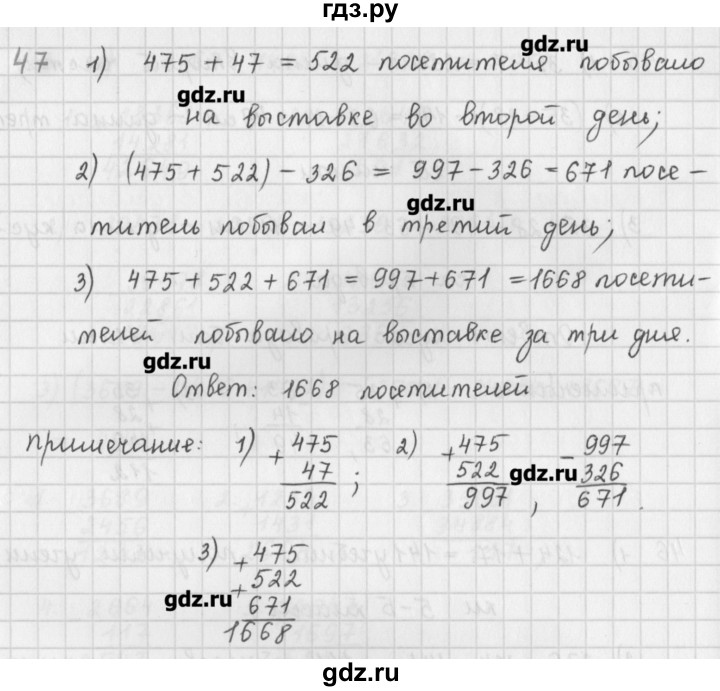 гдз.ру
47 1) 475 + 47 = 522 посетителя побывало
gdz.ru
gdz.ru
на выставке во второй день;
2) (475 + 522) - 326 = 997 - 326 = 671 посе-
gdz.ru
титель побывал в третий день;
3) 475 + 522 + 671 = 997 + 671 = 1668 посети-
телей побывало на выставке за три дня.
gdz.ru
Ответ: 1668 посетителей
примечание: 1) + 475 2) + 475 - 997
47 522 gdz.ru 326
522 ; 997 , 671 .
3) + 475
+ 522
gdz.ru 671
1668
gdz.ru